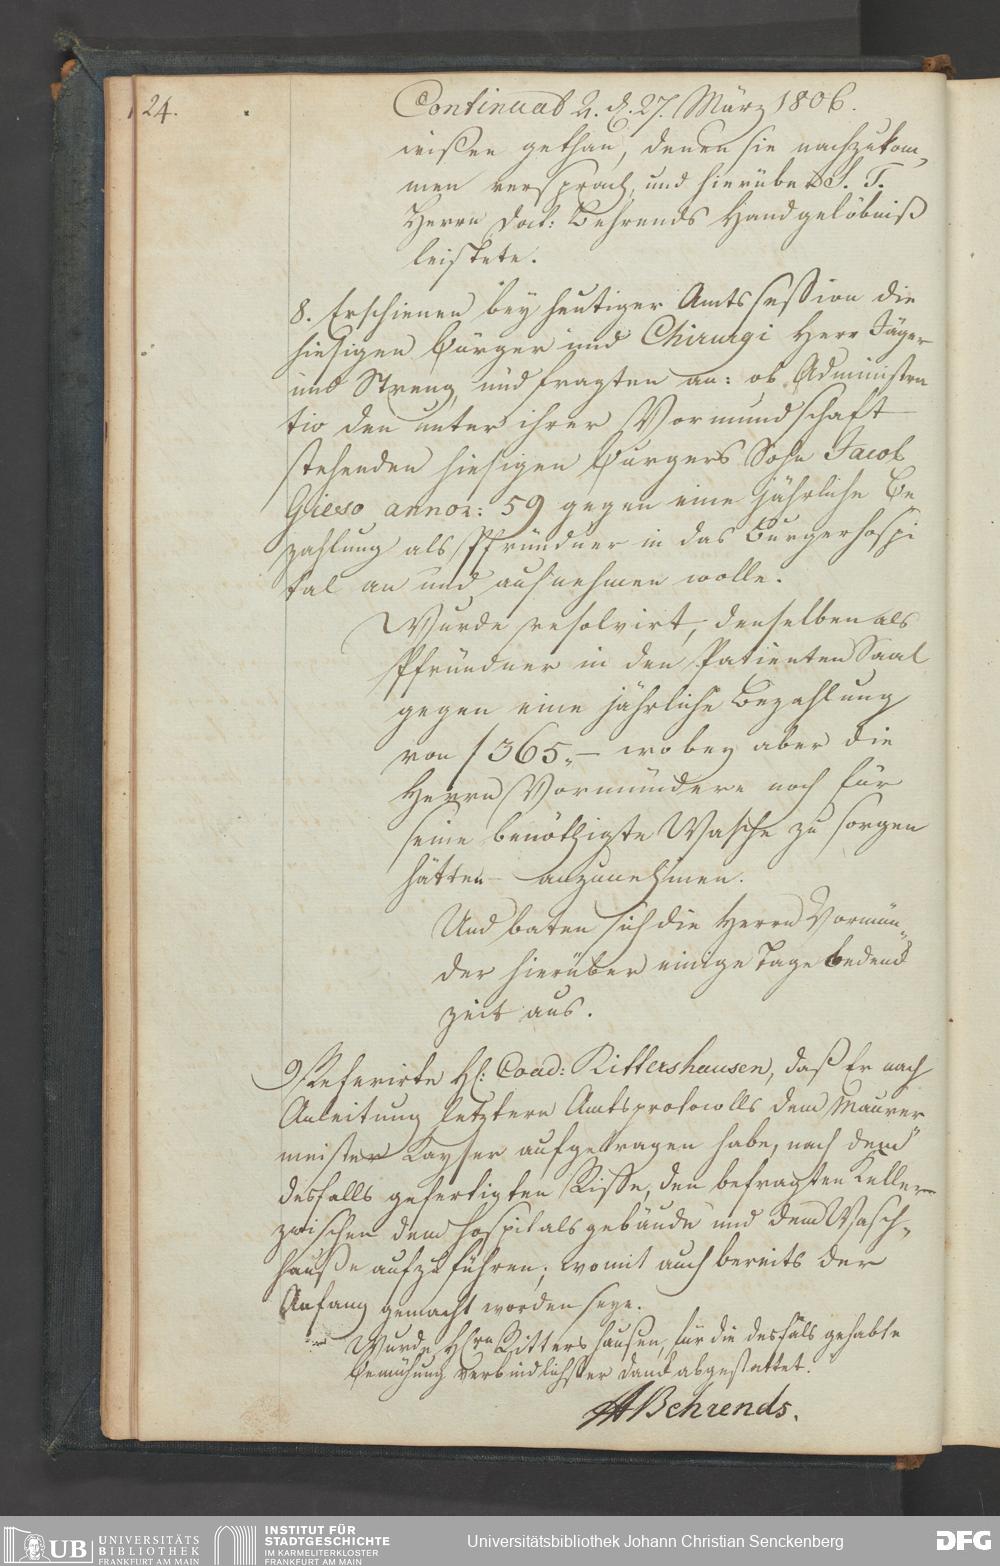 124.
Continuat. v. d. 27. März 1806.
wißen gethan, denen sie nachzukom-
men versprach, und hierüber S. T.
Herrn Doct: Behrends Handgelöbniß
leistete.
8. Erschienen bey heutiger Amtssession die
hiesigen Bürger und Chirurgi Herr Jäger
und Streng, und fragten an: ob Administra
tio den unter ihrer Vormundschaft
stehenden hiesigen Burgers Sohn Jacob
Gieso annor: 59 gegen eine jährliche Be
zahlung als Pfründner in das Burgerhospi
tal an und aufnehmen wolle.
Wurde resolvirt, denselben als
Pfründner in den Patienten Saal
gegen eine jährliche Bezahlung
von f 365,,– wobey aber die
Herrn Vormündere noch für
seine benöthigte Wasche zu sorgen
hätten – anzunehmen.
Und baten sich die Herrn Vormün-
der hierüber einige Tage bedenk
zeit aus.
9) Referirte H: Coad: Rittershausen, daß Er nach
Anleitung letztern Amtsprotocolls dem Maurer
meister Kayser aufgetragen habe, nach dem
desfalls gefertigten Risse, den befragten Keller
zwischen dem Hospitalsgebäude und dem Wasch-
hauße aufzuführen; womit auch bereits der
Anfang gemacht worden seye.
Wurde Hrn Rittershausen, für die desfals gehabte
Bemühung verbindlichster Dank abgestattet.
Behrends.
UB UNIVERSITÄTS
BIBLIOTHEK
FRANKFURT AM MAIN
INSTITUT FÜR
STADTGESCHICHTE
IM KARMELITERKLOSTER
FRANKFURT AM MAIN
Universitätsbibliothek Johann Christian Senckenberg
DFG